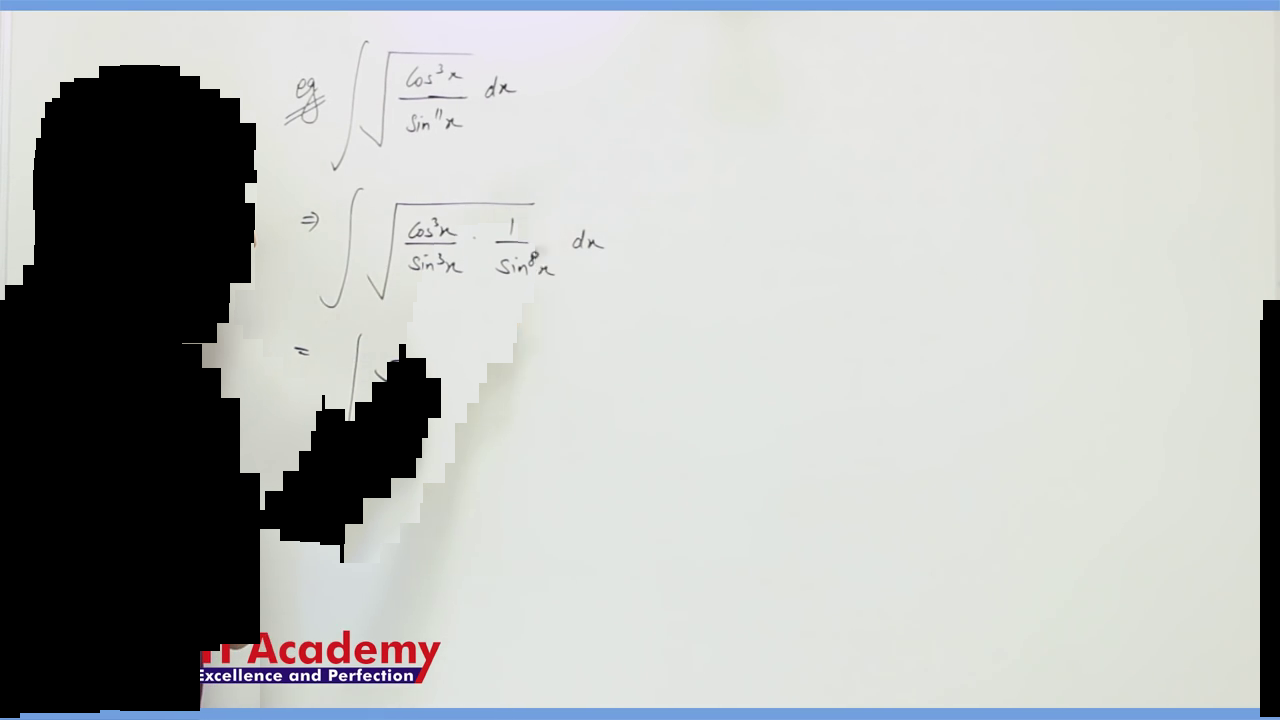 eg ∫ √(cos³x / sin¹¹x) dx
⇒ ∫ √(cos³x / sin³x · 1 / sin⁸x) dx
= ∫ √
Academy
Excellence and Perfection